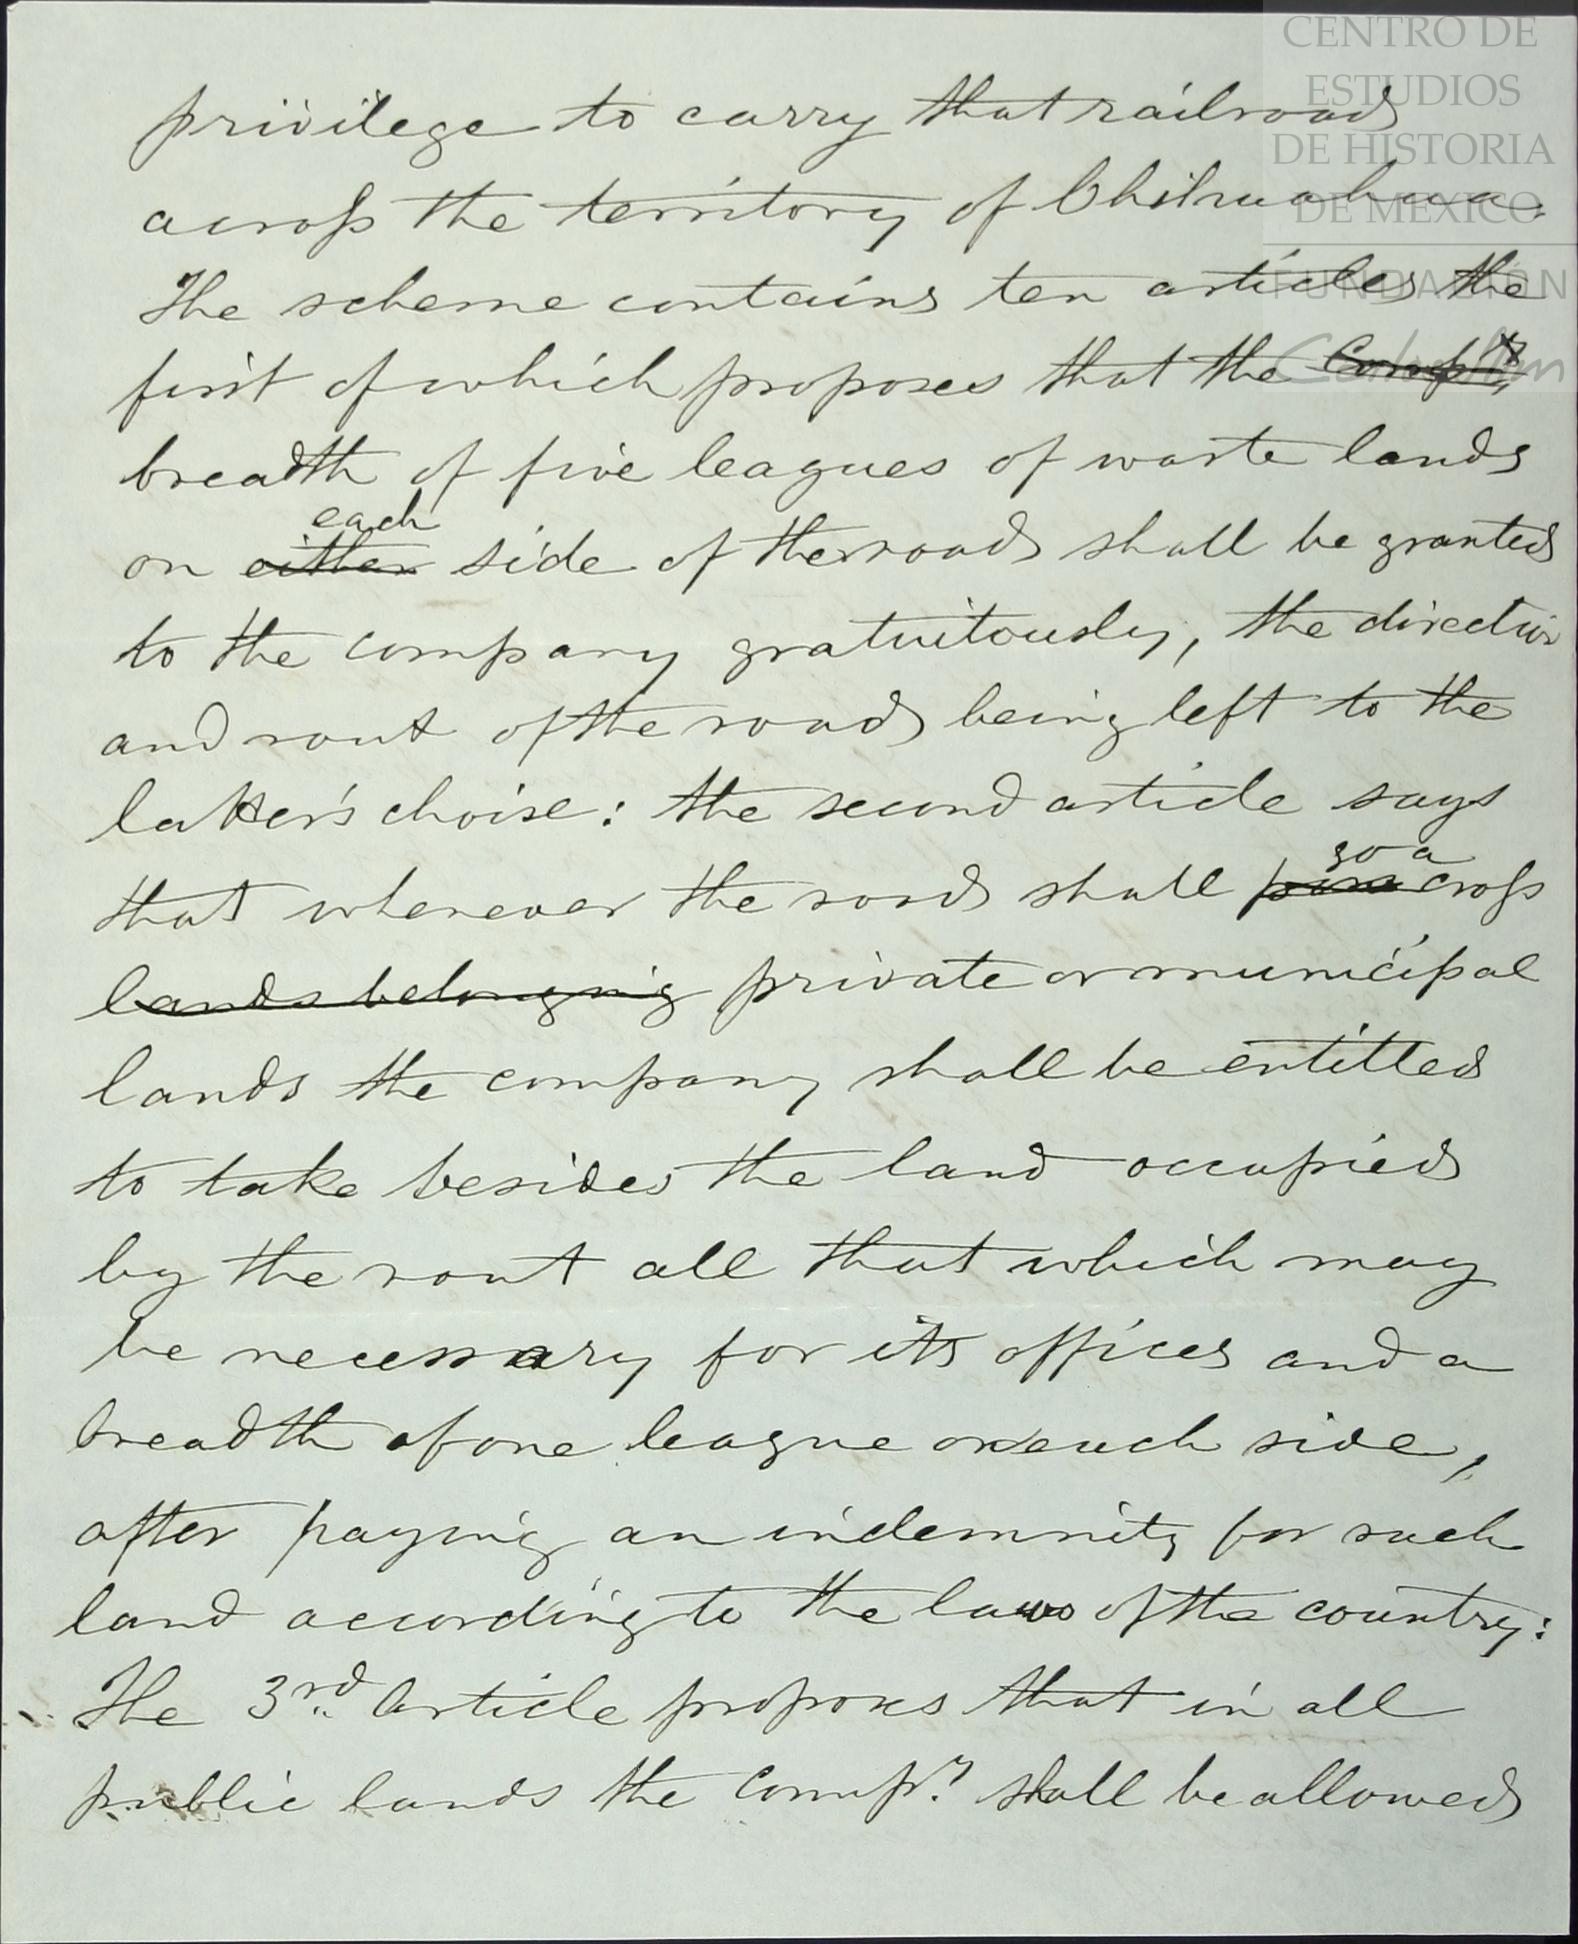 CENTRO DE
ESTUDIOS
DE HISTORIA
DE MEXICO
FUNDACIÓN
privilege to carry that railroad
across the territory of Chihuahua.
The scheme contains ten articles the
first of which proposes that the Compy
breadth of five leagues of waste lands
each
on either side of the road shall be granted
to the company gratuitously, the direction
and rout of the road being left to the
latter's choise: the second article says
go a
that whenever the road shall pass cross
lands belonging private or municipal
lands the company shall be entitled
to take besides the land occupied
by the rout all that which may
be necessary for its offices and a
breadth of one league on each side,
after paying an indemnity for such
land according to the laws of the country:
The 3rd. Article proposes that in all
public lands the Compy. shall be allowed